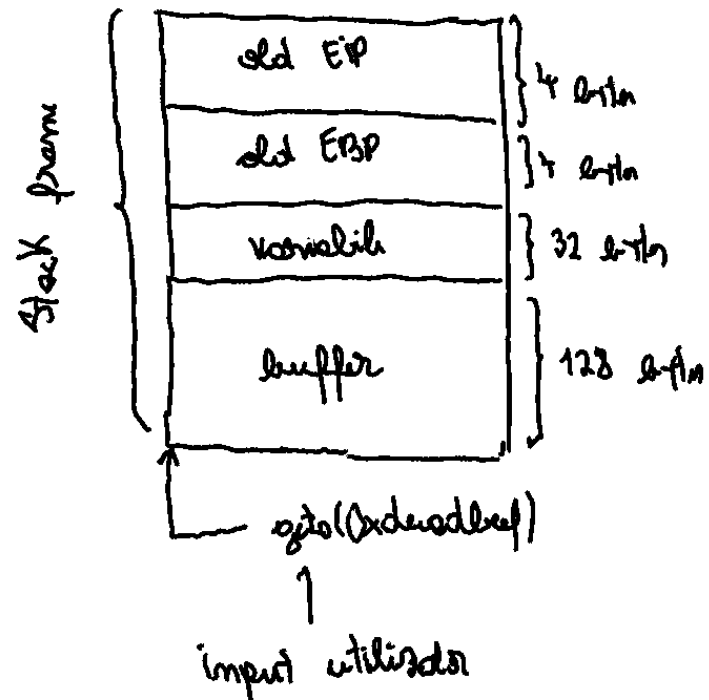 Stack frame
old EIP
4 bytes
old EBP
4 bytes
variabile
32 bytes
buffer
128 bytes
gets(0xdeadbeef)
input utilizator